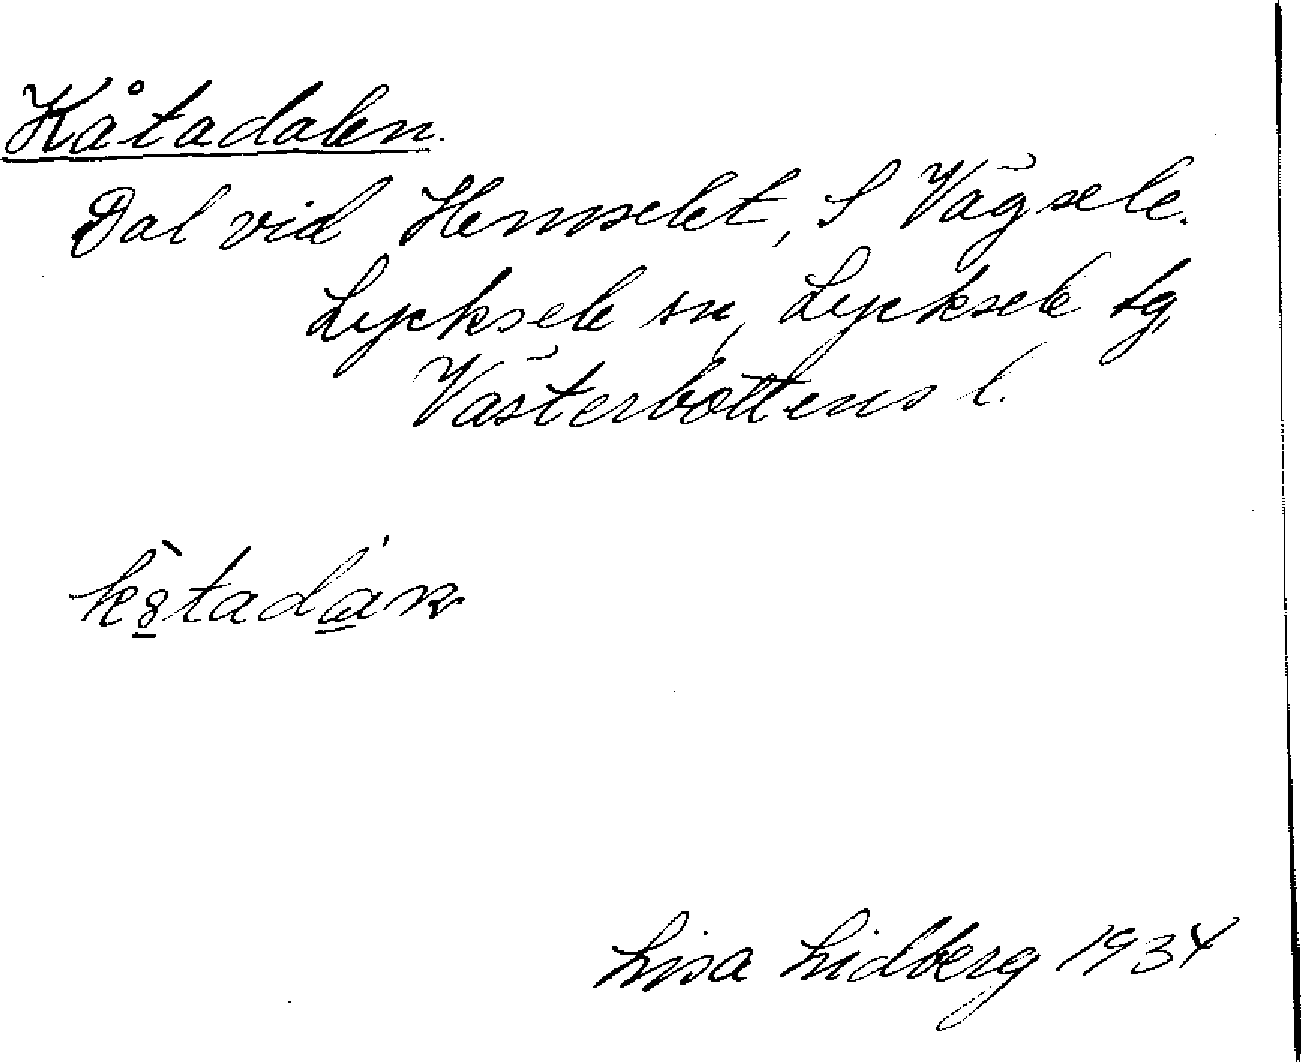 Kåtadalen.
Dal vid Hemselet, S Vägsele.
Lycksele sn, Lycksele tg,
Västerbottens l.
Lisa Lidberg 1934